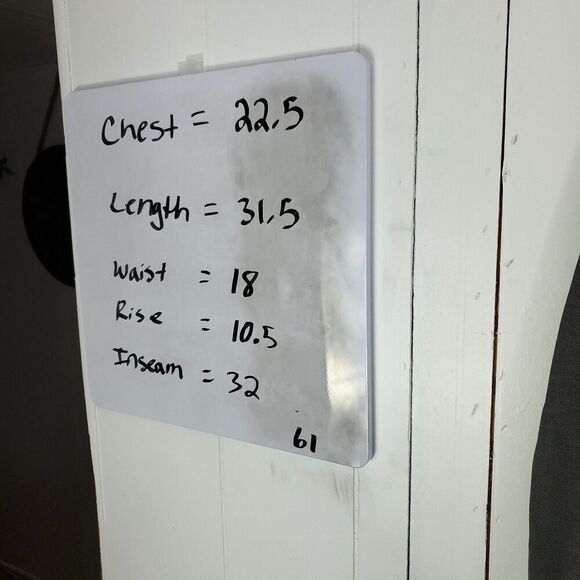 Chest = 22.5
Length = 31.5
Waist = 18
Rise = 10.5
Inseam = 32
61